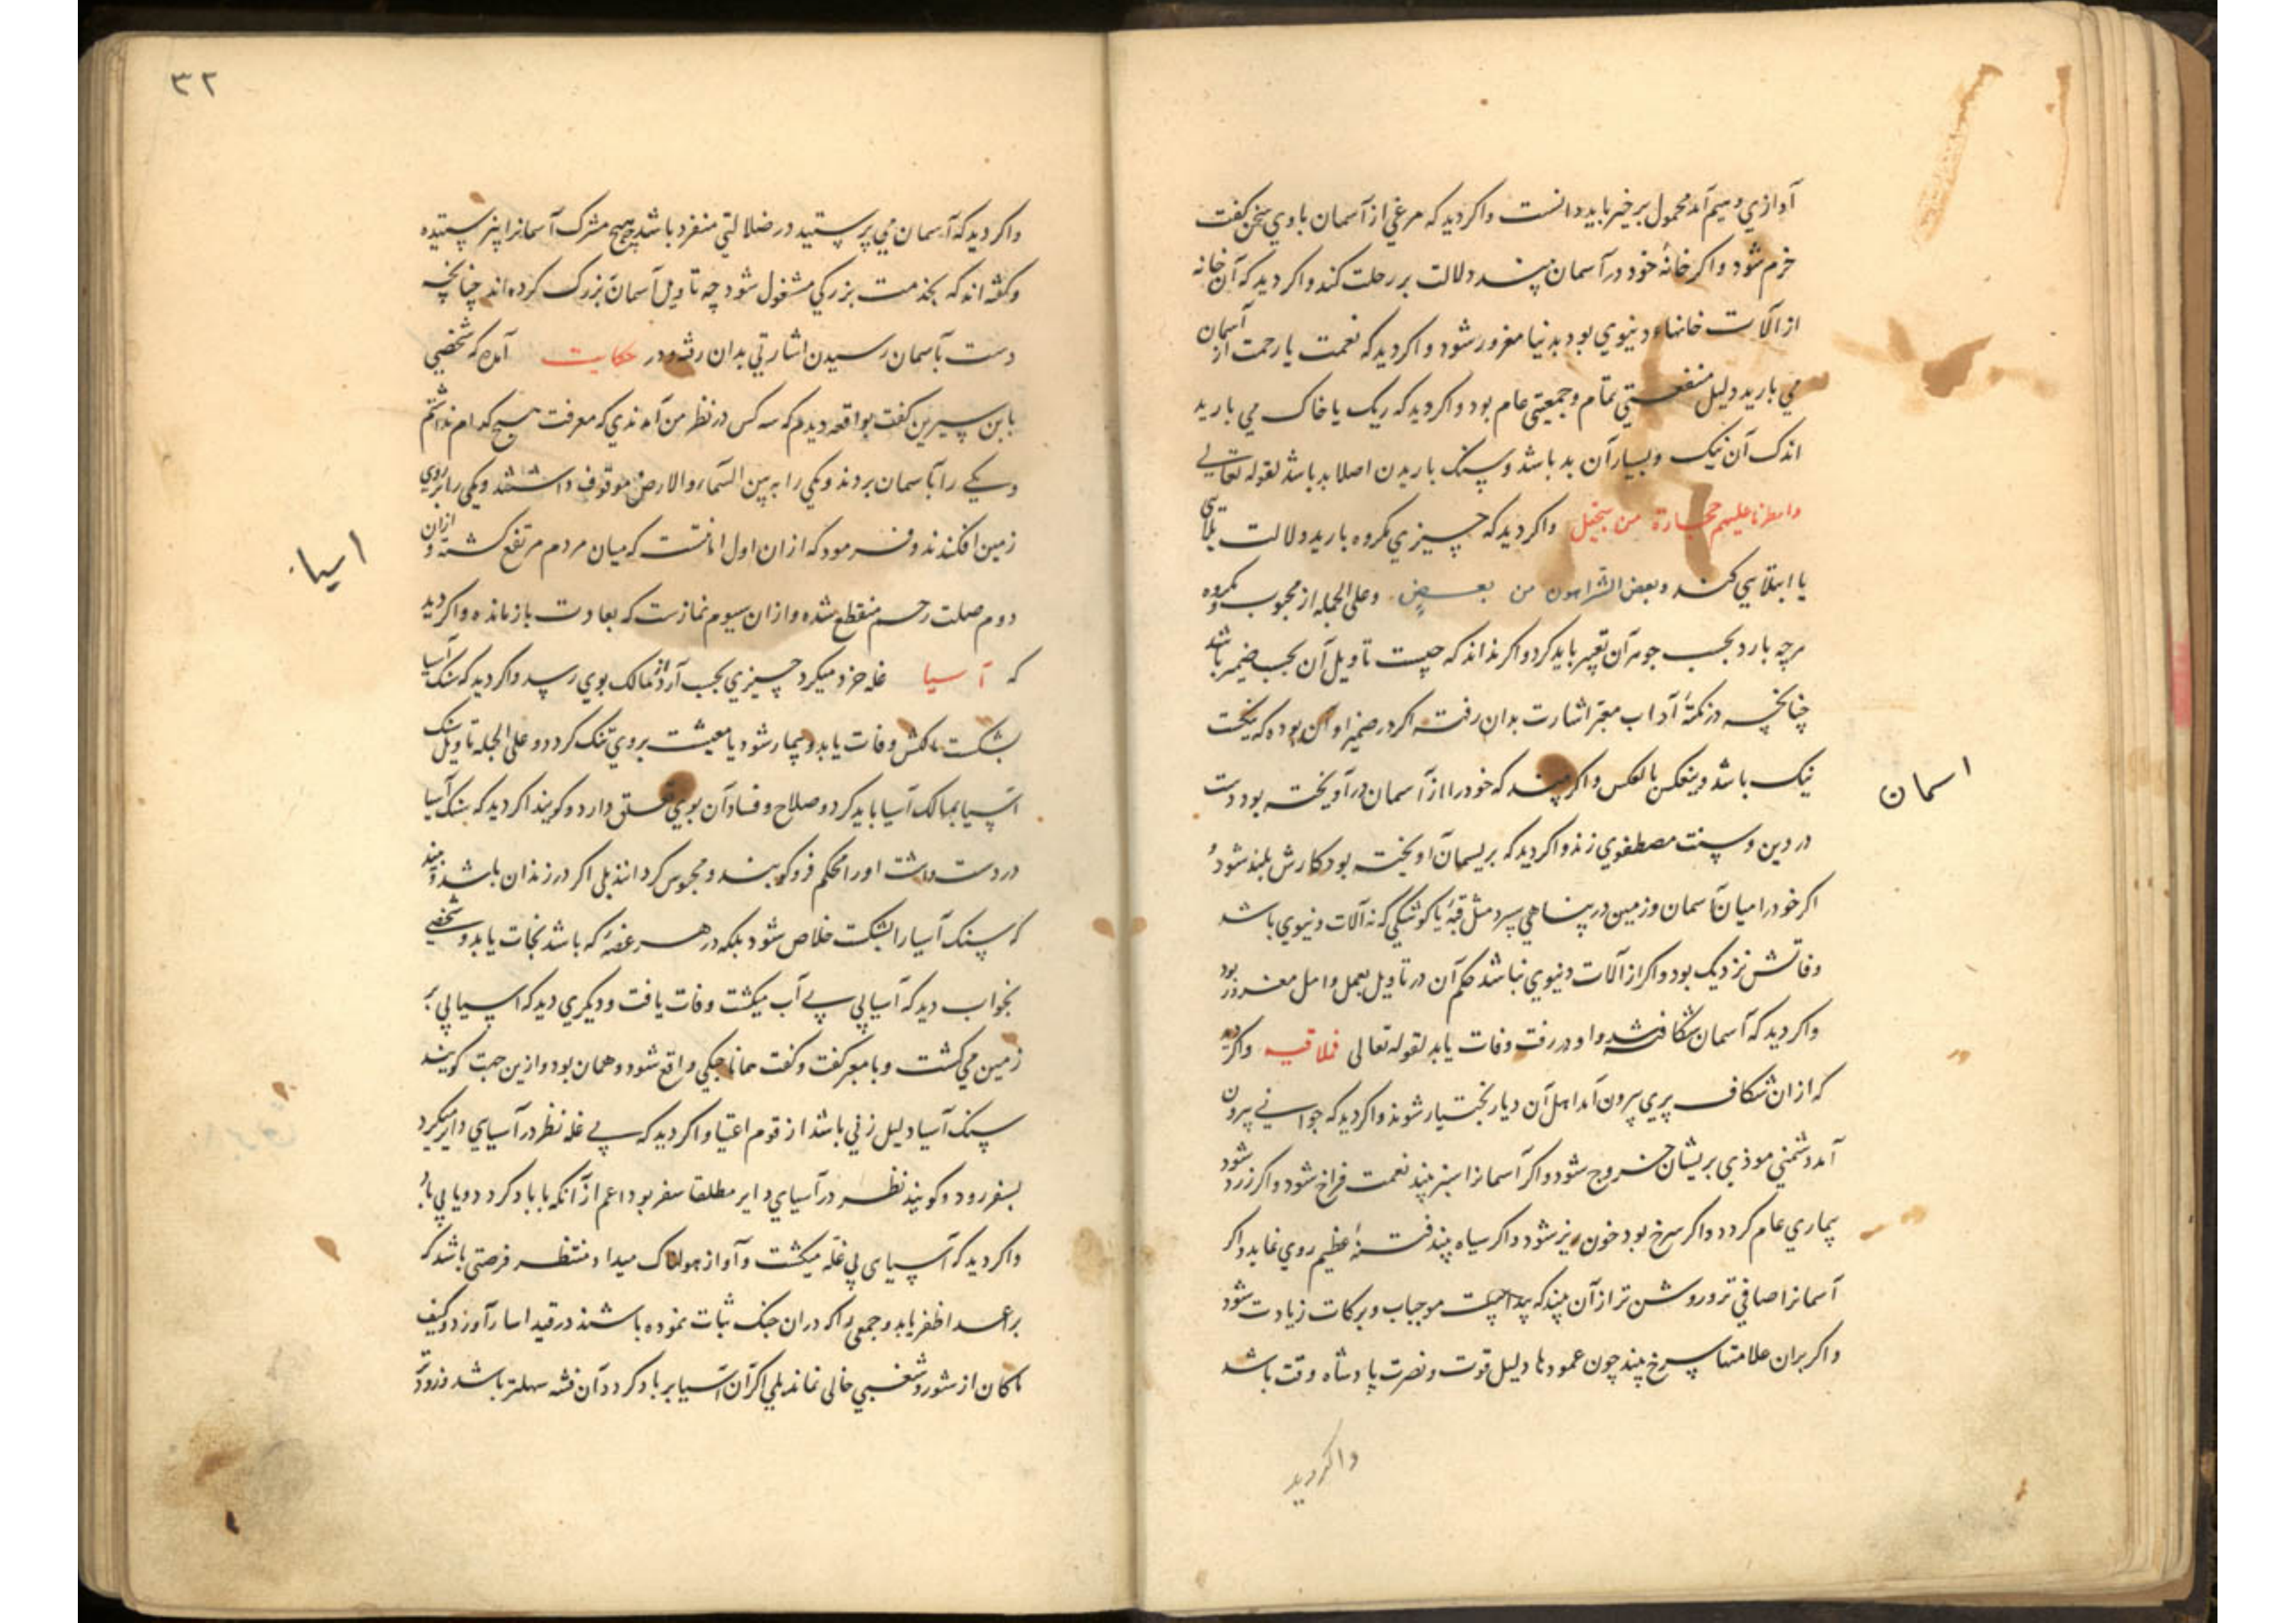 آوازی و سیم آمد محمول بر خیر باید دانست و اکر دید که مرغی از آسمان با وی سخن کفت
خرم شود و اکر خانهٔ خود در آسمان بیند دلالت بر رحلت کند و اکر دید که آن خانه
از آلات خانهاء دنیوی بود بدنیا مغرور شود و اکر دید که نعمت یا رحمت از آسمان
می بارید دلیل منفعتی تمام و جمعیتی عام بود و اکر دید که ریک یا خاک می بارید
اندک آن نیک و بسیار آن بد باشد و سنک باریدن اصلا بد باشد لقوله تعالی
وامطرنا علیهم حجارة من سجیل واکر دید که چیزی مکروه بارید دلالت
یا ابتلایی کند وبعض الشر اهون من بعضٍ وعلی الجمله از محبوب و مکروه
هرچه بارد بحسب جوهر آن تعبیر باید کرد و اکر نداند که چیست تاویل آن بحسب ضمیر باشد
چنانچه در نکتهٔ آداب معبر اشارت بدان رفت اکر در ضمیر او آن بوده که نیکست
نیک باشد وینعکس بالعکس واکر بیند که خود را از آسمان درآویخته بود دست
در دین و سنت مصطفوی زند واکر دید که بریسمان آویخته بود کارش بلند شود و
اکر خود را میان آسمان و زمین در پناهی سپرد مثل قبهٔ یا کوشکی که نه آلات دنیوی باشد
وفاتش نزدیک بود واکر از آلات دنیوی نباشد حکم آن در تاویل بعمل و امل مغرور بود
واکر دید که آسمان شکافته شد و او در رفت وفات یابد لقوله تعالی فملاقیه واکر دید
که ازان شکاف پیری بیرون آمد اهل آن دیار بختیار شوند واکر دید که جوانی بیرون
آمد دشمنی موذی بریشان خروج شود واکر آسمانرا سبز بیند نعمت فراخ شود واکر زرد شود
بیماری عام کردد واکر سرخ بود خون ریز شود واکر سیاه بیند فتنهٔ عظیم روی نماید واکر
آسمانرا صافی تر و روشن تر ازآن بیند که پیداست موجبات و برکات زیادت شود
واکر بران علامتها سرخ بیند چون عمودها دلیل قوت و نصرت پادشاه وقت باشد
واکر دید
اسمان
۳۲
واکر دید که آسمان می پرستید در ضلالتی منفرد باشد چه هیچ مشرک آسمانرا نپرستیده
وکفته اند که بخدمت بزرکی مشغول شود چه تاویل آسمان بزرک کرده اند چنانچه
دست بآسمان رسیدن اشارتی بدان رفته و در حکایت آمده که شخصی
بابن سیرین کفت بواقعه دیدم که سه کس در نظر من آمدندی که معرفت هیچ کدام نداشتم
و یکی را بآسمان بردند و یکی را به بین السماء والارض موقوف داشتند و یکی را بر روی
زمین افکندند و فرمود که ازان اول امانتست که میان مردم مرتفع کشته و ازان
دوم صلت رحم منقطع شده و ازان سیوم نمازست که بعادت بازمانده واکر دید
که آسیا غله خرد میکرد چیزی بحسب آرد از ممالک بوی رسد واکر دید که سنک آسیا
بشکست مالکش وفات یابد و بیمار شود یا معیشت بروی تنک کردد و علی الجمله تاویل سنک
آسیا بمالک آسیا باید کرد و صلاح و فساد آن بوی تعلق دارد و کویند اکر دید که سنک آسیا
در دست داشت او را محکم فرو کوبند و محبوس کردانند بلی اکر در زندان باشد و بیند
که سنک آسیا را بشکست خلاص شود بلکه در هر غصهٔ که باشد نجات یابد و شخصی
بخواب دید که آسیایی بی آب میکشت وفات یافت و دیکری دید که آسیایی بر
زمین می کشت و با معبر کفت و کفت همانا جنکی واقع شود و همان بود و ازین جهت کویند
سنک آسیا دلیل زنی باشد از قوم اغنیا واکر دید که بی غله نظر در آسیای دایر میکرد
بسفر رود و کویند نظر در آسیای دایر مطلقا سفر بود اعم از آنکه با باد کردد و یا بی باد
واکر دید که آسیای بی غله میکشت و آواز هولناک میداد منتظر فرصتی باشد که
بر اعدا ظفر یابد و جمعی را که دران جنک ثبات نموده باشند در قید اسار آورد و کیف
ماکان از شور و شغبی خالی نماند بلی اکر آن آسیا بر باد کردد آن فتنه سهلتر باشد و زود
اسیا